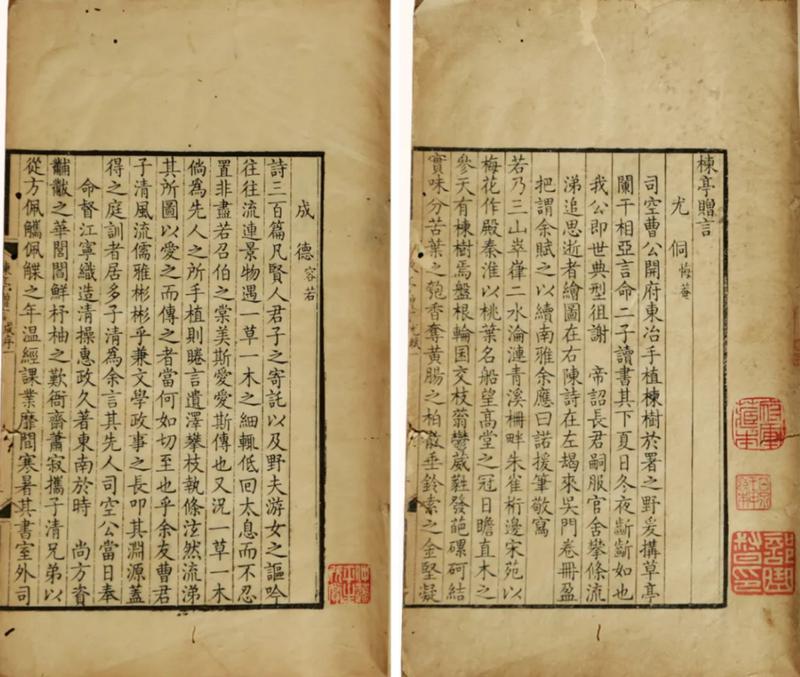 楝亭贈言
尤侗 悔菴
司空曹公開府東冶手植楝樹於署之野爰搆草亭
闌干相亞言命二子讀書其下夏日冬夜斷斷如也
我公即世典型徂謝 帝詔長君嗣服官舍攀條流
涕追思逝者繪圖在右陳詩在左朅來吳門卷冊盈
把謂余賦之以續南雅余應曰諾援筆敬寫
若乃三山崒嵂二水淪漣青溪柵畔朱雀桁邊宋苑以
梅花作殿秦淮以桃葉名船望高堂之冠日瞻直木之
參天有楝樹焉盤根輪囷交枝蓊鬱葳蕤發葩磥砢結
實味分苦葉之匏香奪黃腸之柏散垂鈴索之金堅凝
成德 容若
詩三百篇凡賢人君子之寄託以及野夫游女之謳吟
往往流連景物遇一草一木之細輒低回太息而不忍
置非盡若召伯之棠美斯愛愛斯傳也又況一草一木
倘為先人之所手植則睠言遺澤攀枝執條泫然流涕
其所圖以愛之而傳之者當何如切至也乎余友曹君
子清風流儒雅彬彬乎兼文學政事之長叩其淵源蓋
得之庭訓者居多子清為余言其先人司空公當日奉
命督江寧織造清操惠政久著東南於時 尚方資
黼黻之華閭閻鮮杼柚之歎衙齋蕭寂攜子清兄弟以
從方佩觿佩韘之年溫經課業靡間寒暑其書室外司